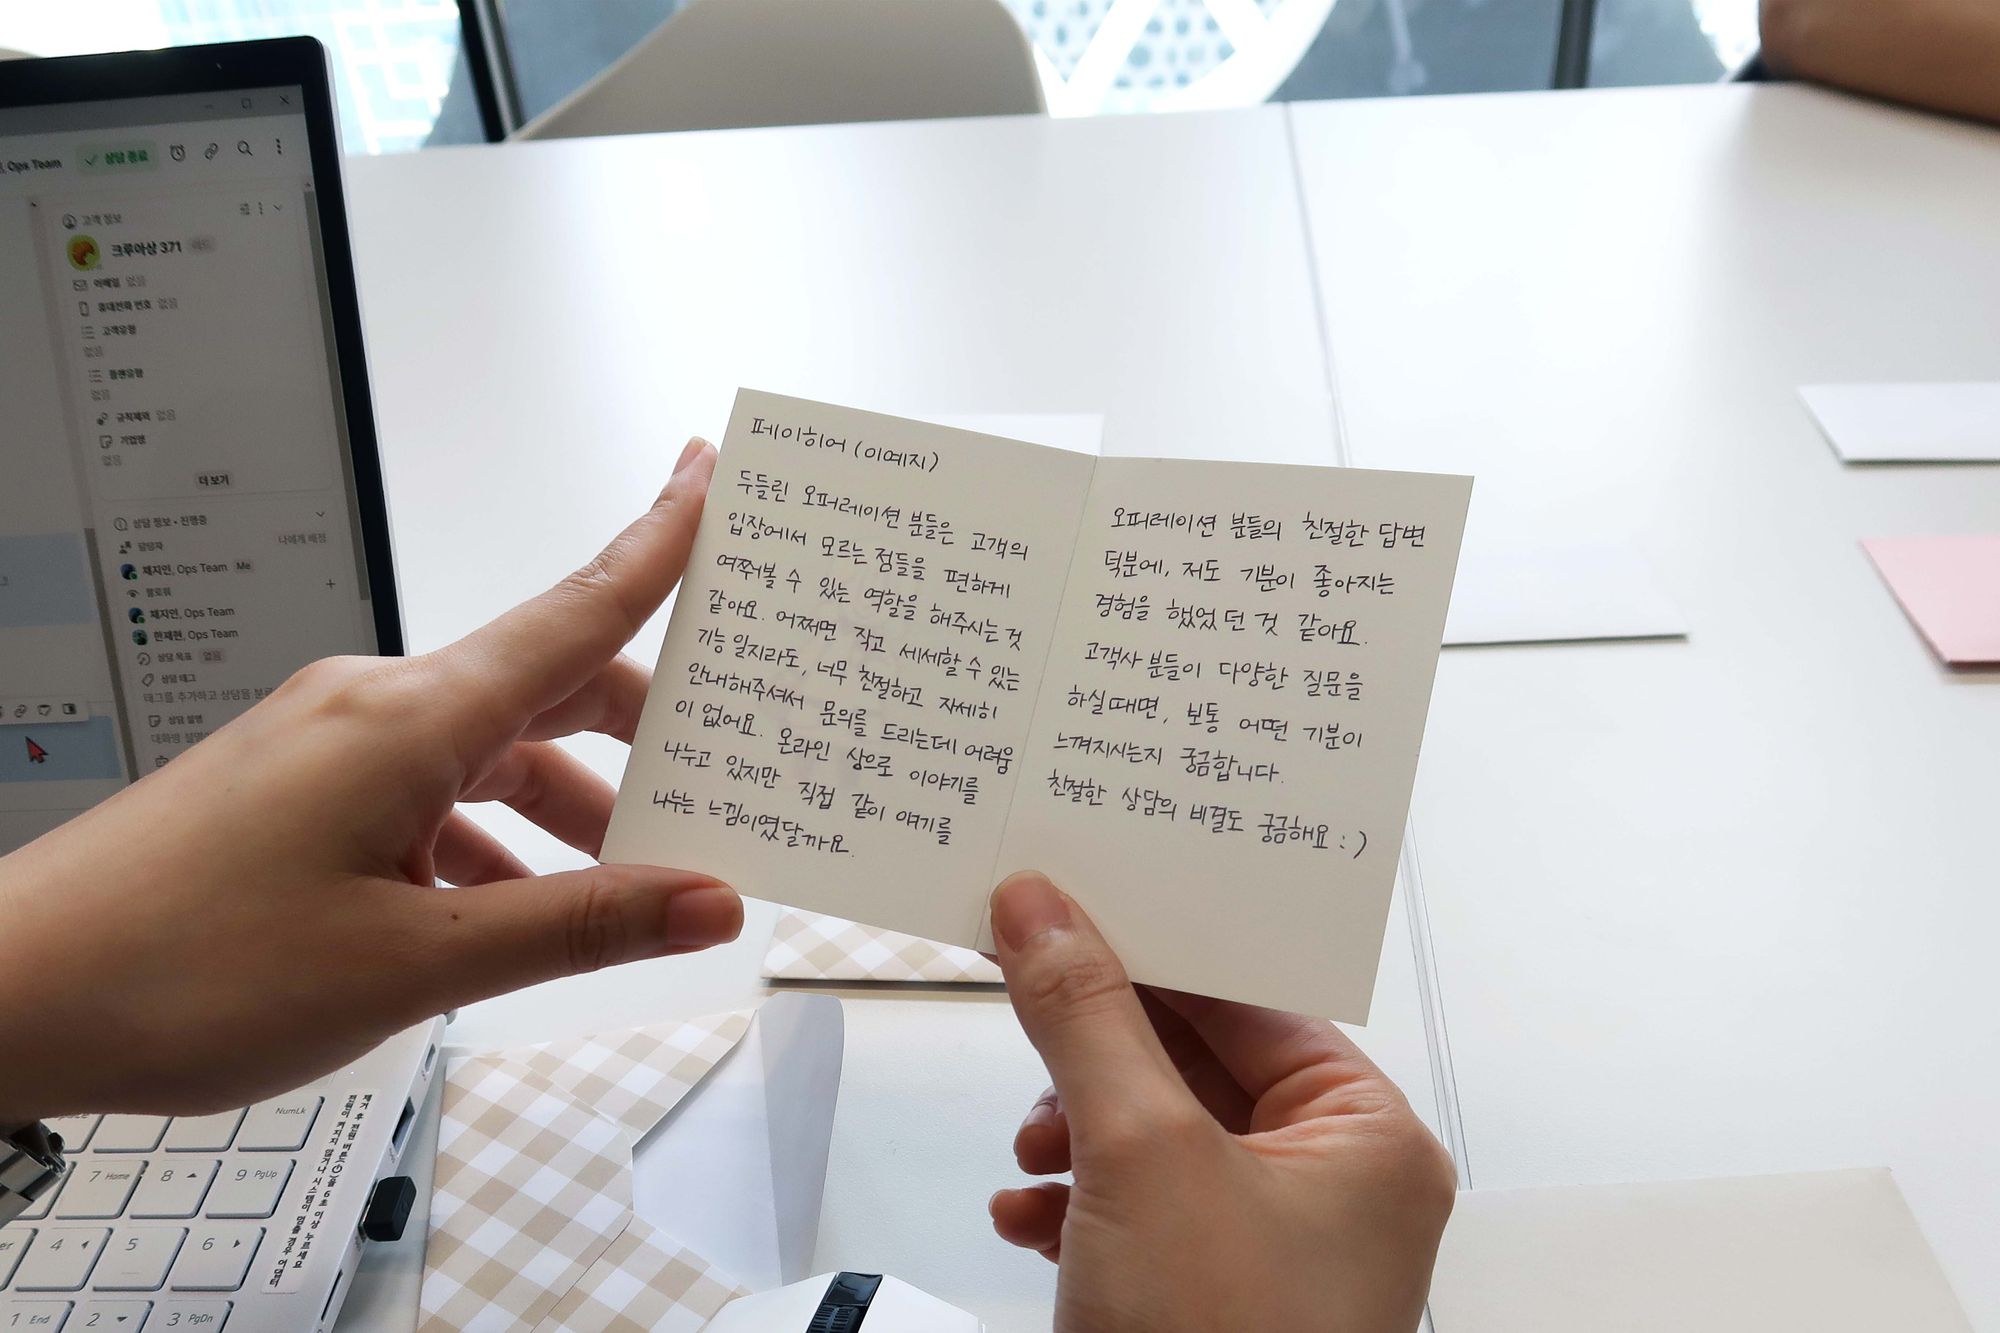 Ops Team
상담 종료
고객 정보
크루아상 371
이메일 없음
휴대전화 번호 없음
고객유형
없음
플랜유형
없음
규칙제외 없음
기업명
없음
더 보기
상담 정보 • 진행중
담당자
나에게 배정
채지인, Ops Team Me
팔로워
채지인, Ops Team
한재현, Ops Team
상담 목표 없음
상담 태그
태그를 추가하고 상담을 분류
상담 설명
대화방 설명
페이히어 (이예지)
두들린 오퍼레이션 분들은 고객의
입장에서 모르는 점들을 편하게
여쭤볼 수 있는 역할을 해주시는 것
같아요. 어쩌면 작고 세세할 수 있는
기능일지라도, 너무 친절하고 자세히
안내해주셔서 문의를 드리는데 어려움
이 없어요. 온라인 상으로 이야기를
나누고 있지만 직접 같이 얘기를
나누는 느낌이였달까요.
오퍼레이션 분들의 친절한 답변
덕분에, 저도 기분이 좋아지는
경험을 했었던 것 같아요.
고객사 분들이 다양한 질문을
하실때면, 보통 어떤 기분이
느껴지시는지 궁금합니다.
친절한 상담의 비결도 궁금해요 :)
제거 후 전원 버튼(⏻)을 6초 이상 누르세요
전원이 켜지지 않거나 시스템이 멈출 경우 어댑터
NumLk
7 Home 8 9 PgUp
4 5 6
1 End 2 3 PgDn